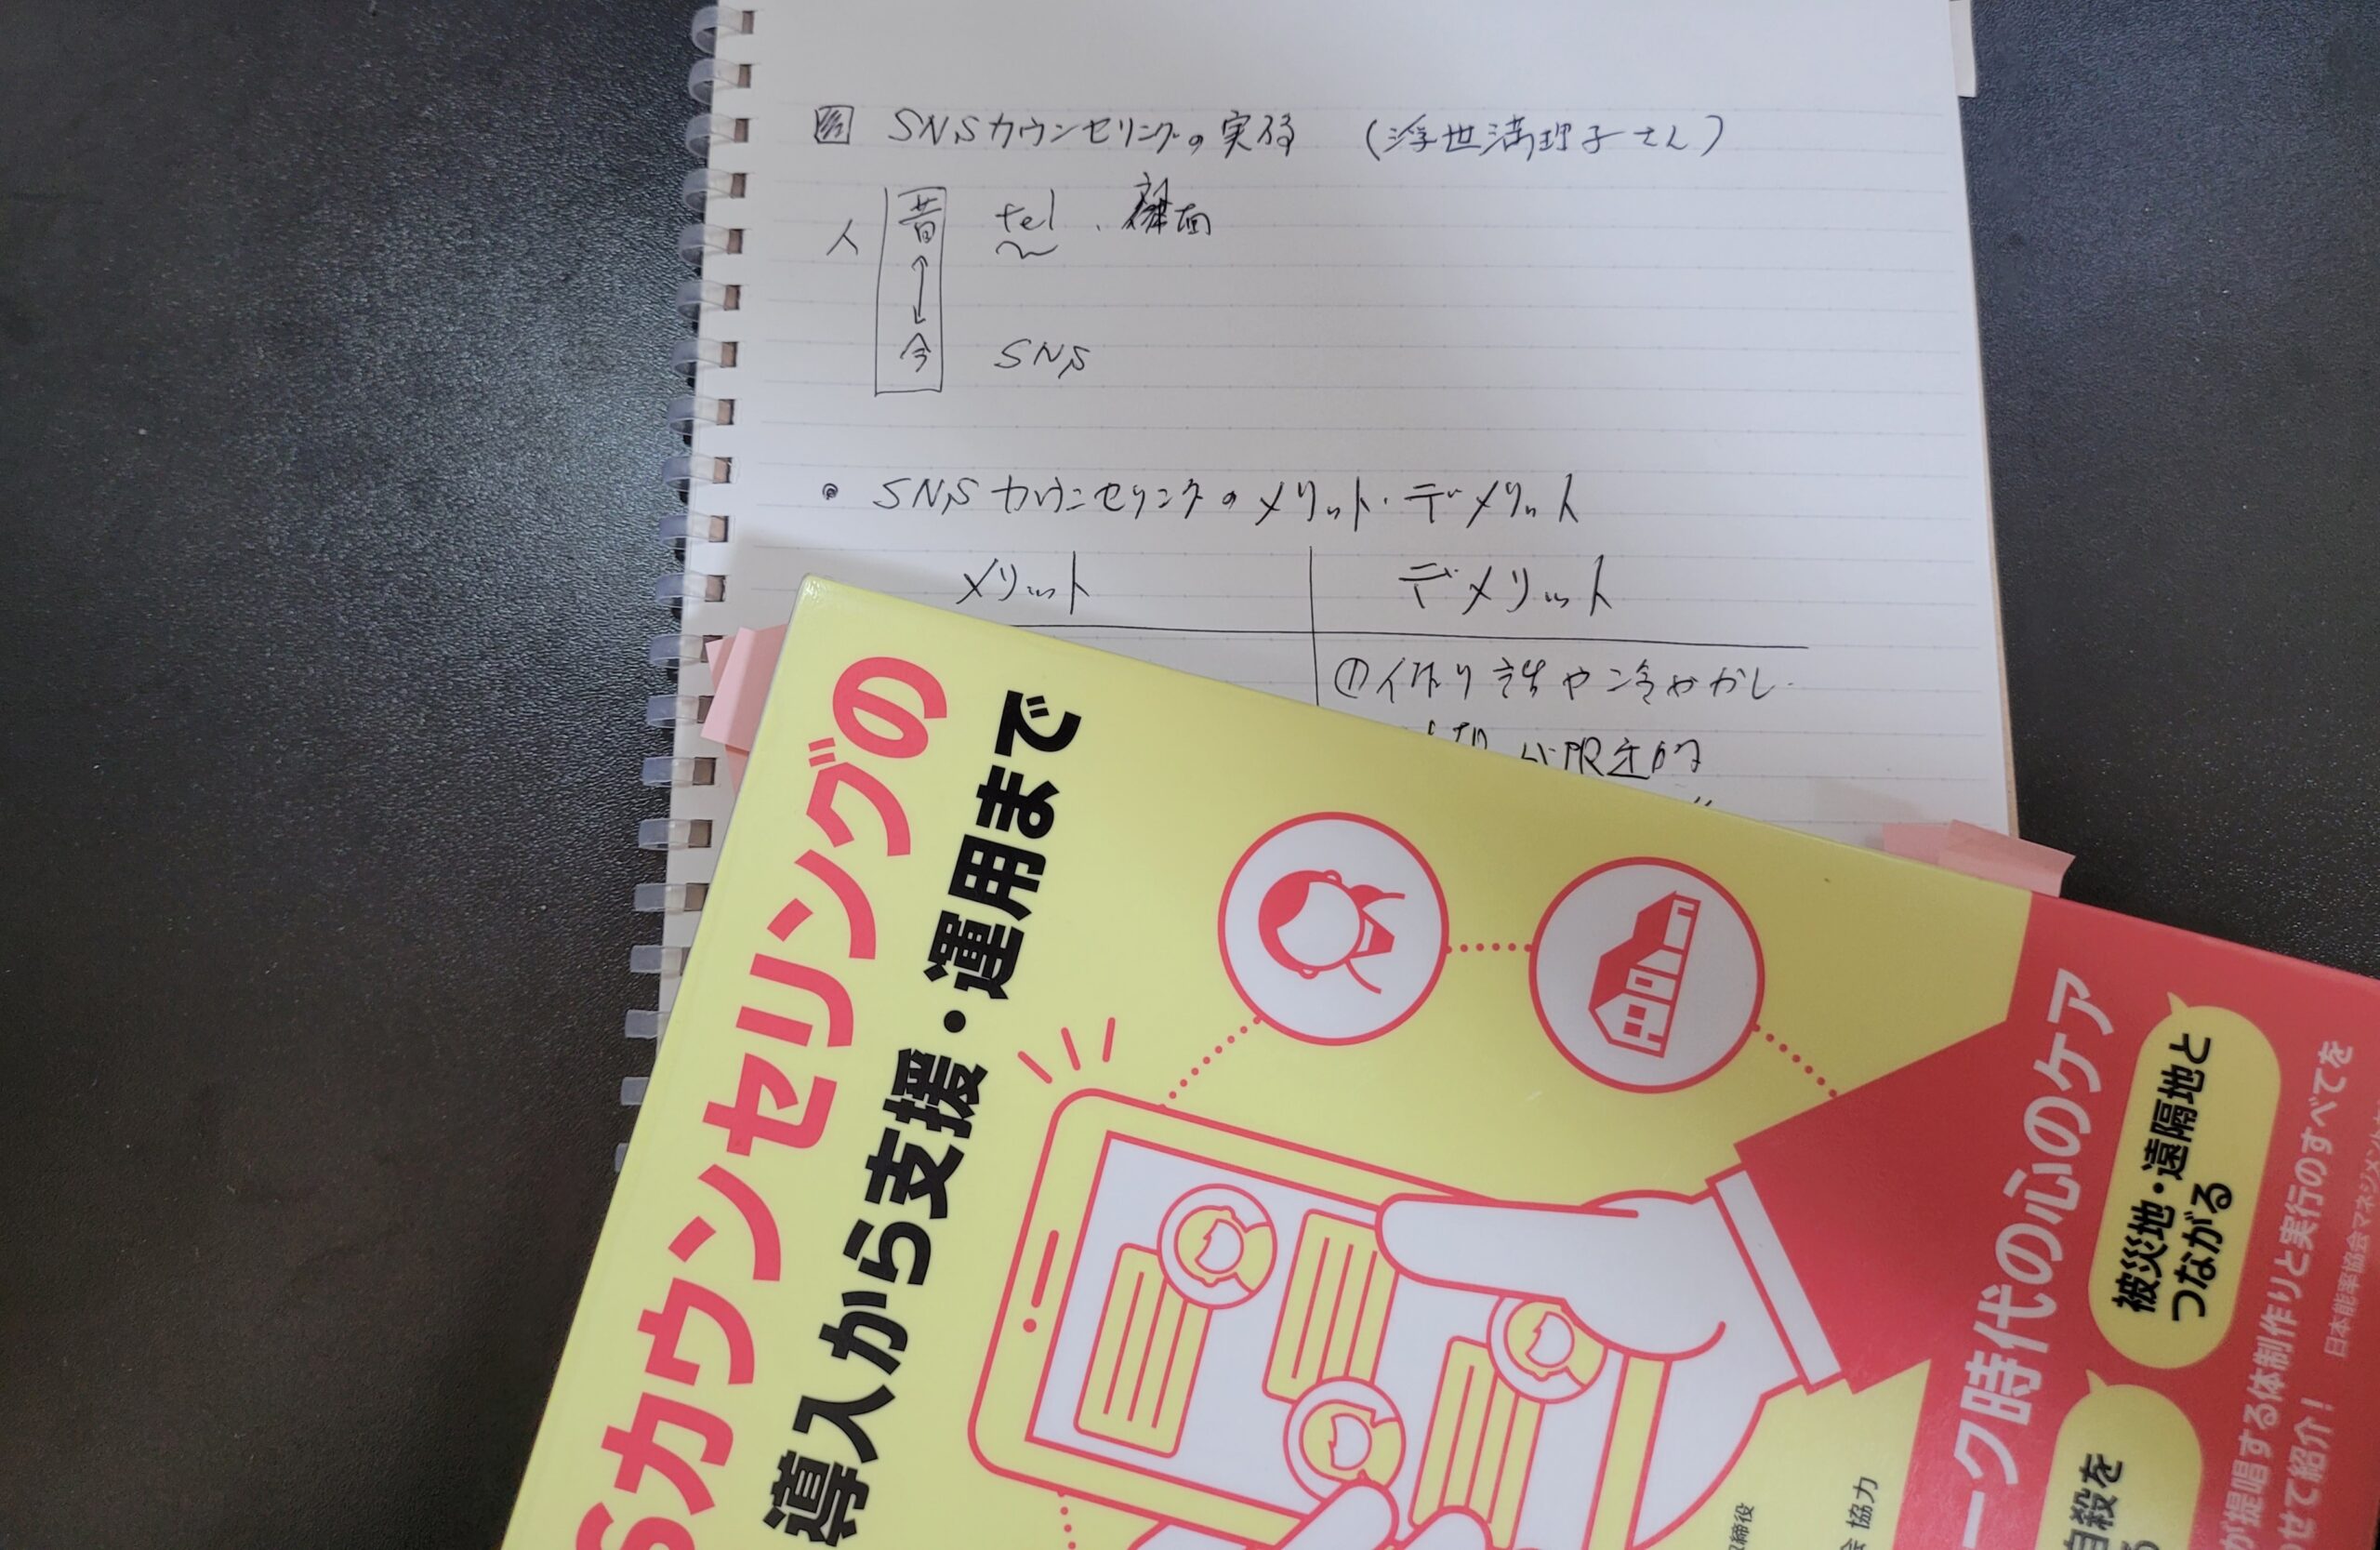 SNSカウンセリングの実務 (浮世満理子さん)
人 昔 tel、対面
今 SNS
SNSカウンセリングのメリット・デメリット
メリット デメリット
①作り話や冷やかし
が限定的
カウンセリングの
導入から支援・運用まで
ーク時代の心のケア
被災地・遠隔地と
つながる
自殺を
る
が提唱する体制作りと実行のすべてを
せて紹介!
日本能率協会マネジメン
締役
会 協力